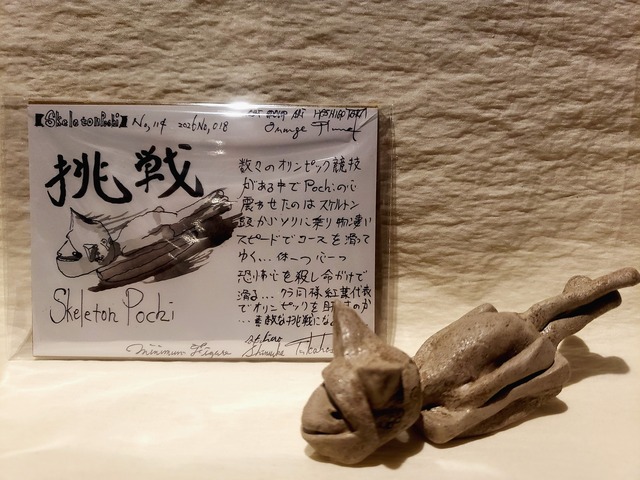 【SkeletonPochi】 No,114 2026No,018
Orange
挑戦
数々のオリンピック競技
がある中でPochiの心
震わせたのはスケルトン
ソリに乗り物凄い
スピードでコースを滑って
ゆく...体一つ心一つ
恐怖心を殺し命がけで
滑る...
でオリンピックを目指すのか
...素敵な挑戦になる
Skeleton Pochi
minimum Figure
Shinsuke